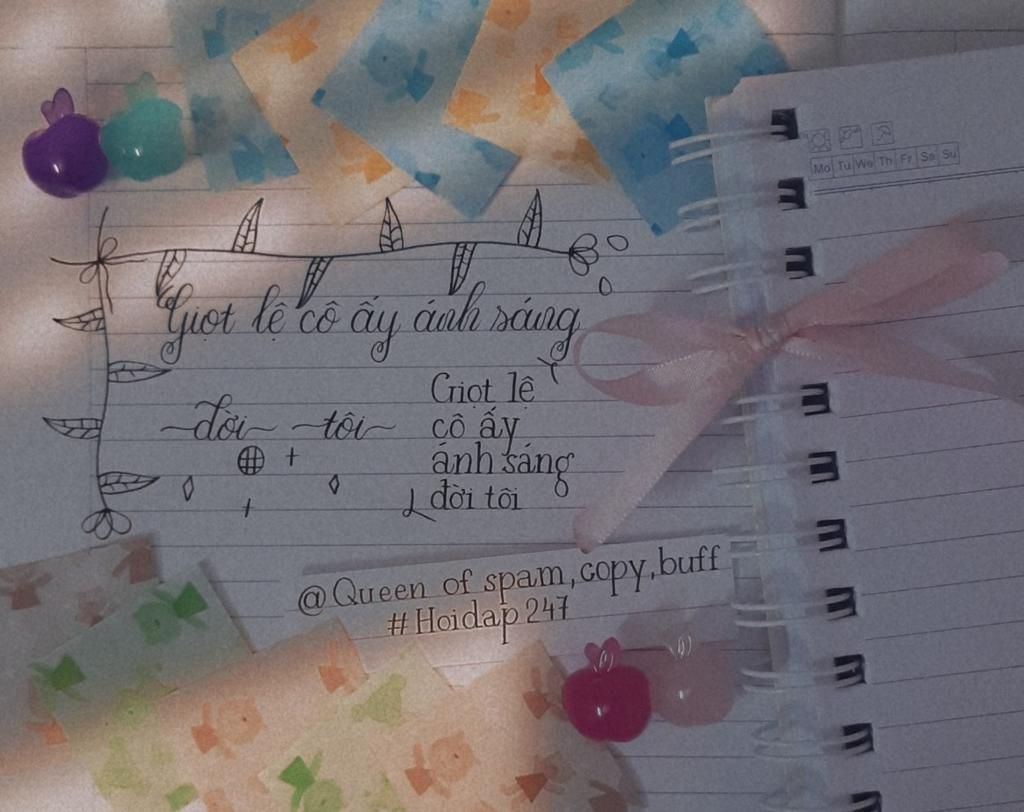 Mo Tu We Th Fr Sa Su
Giọt lệ cô ấy ánh sáng
~đời~ ~tôi~
Giọt lệ
cô ấy
ánh sáng
đời tôi
@Queen of spam, copy, buff
#Hoidap247